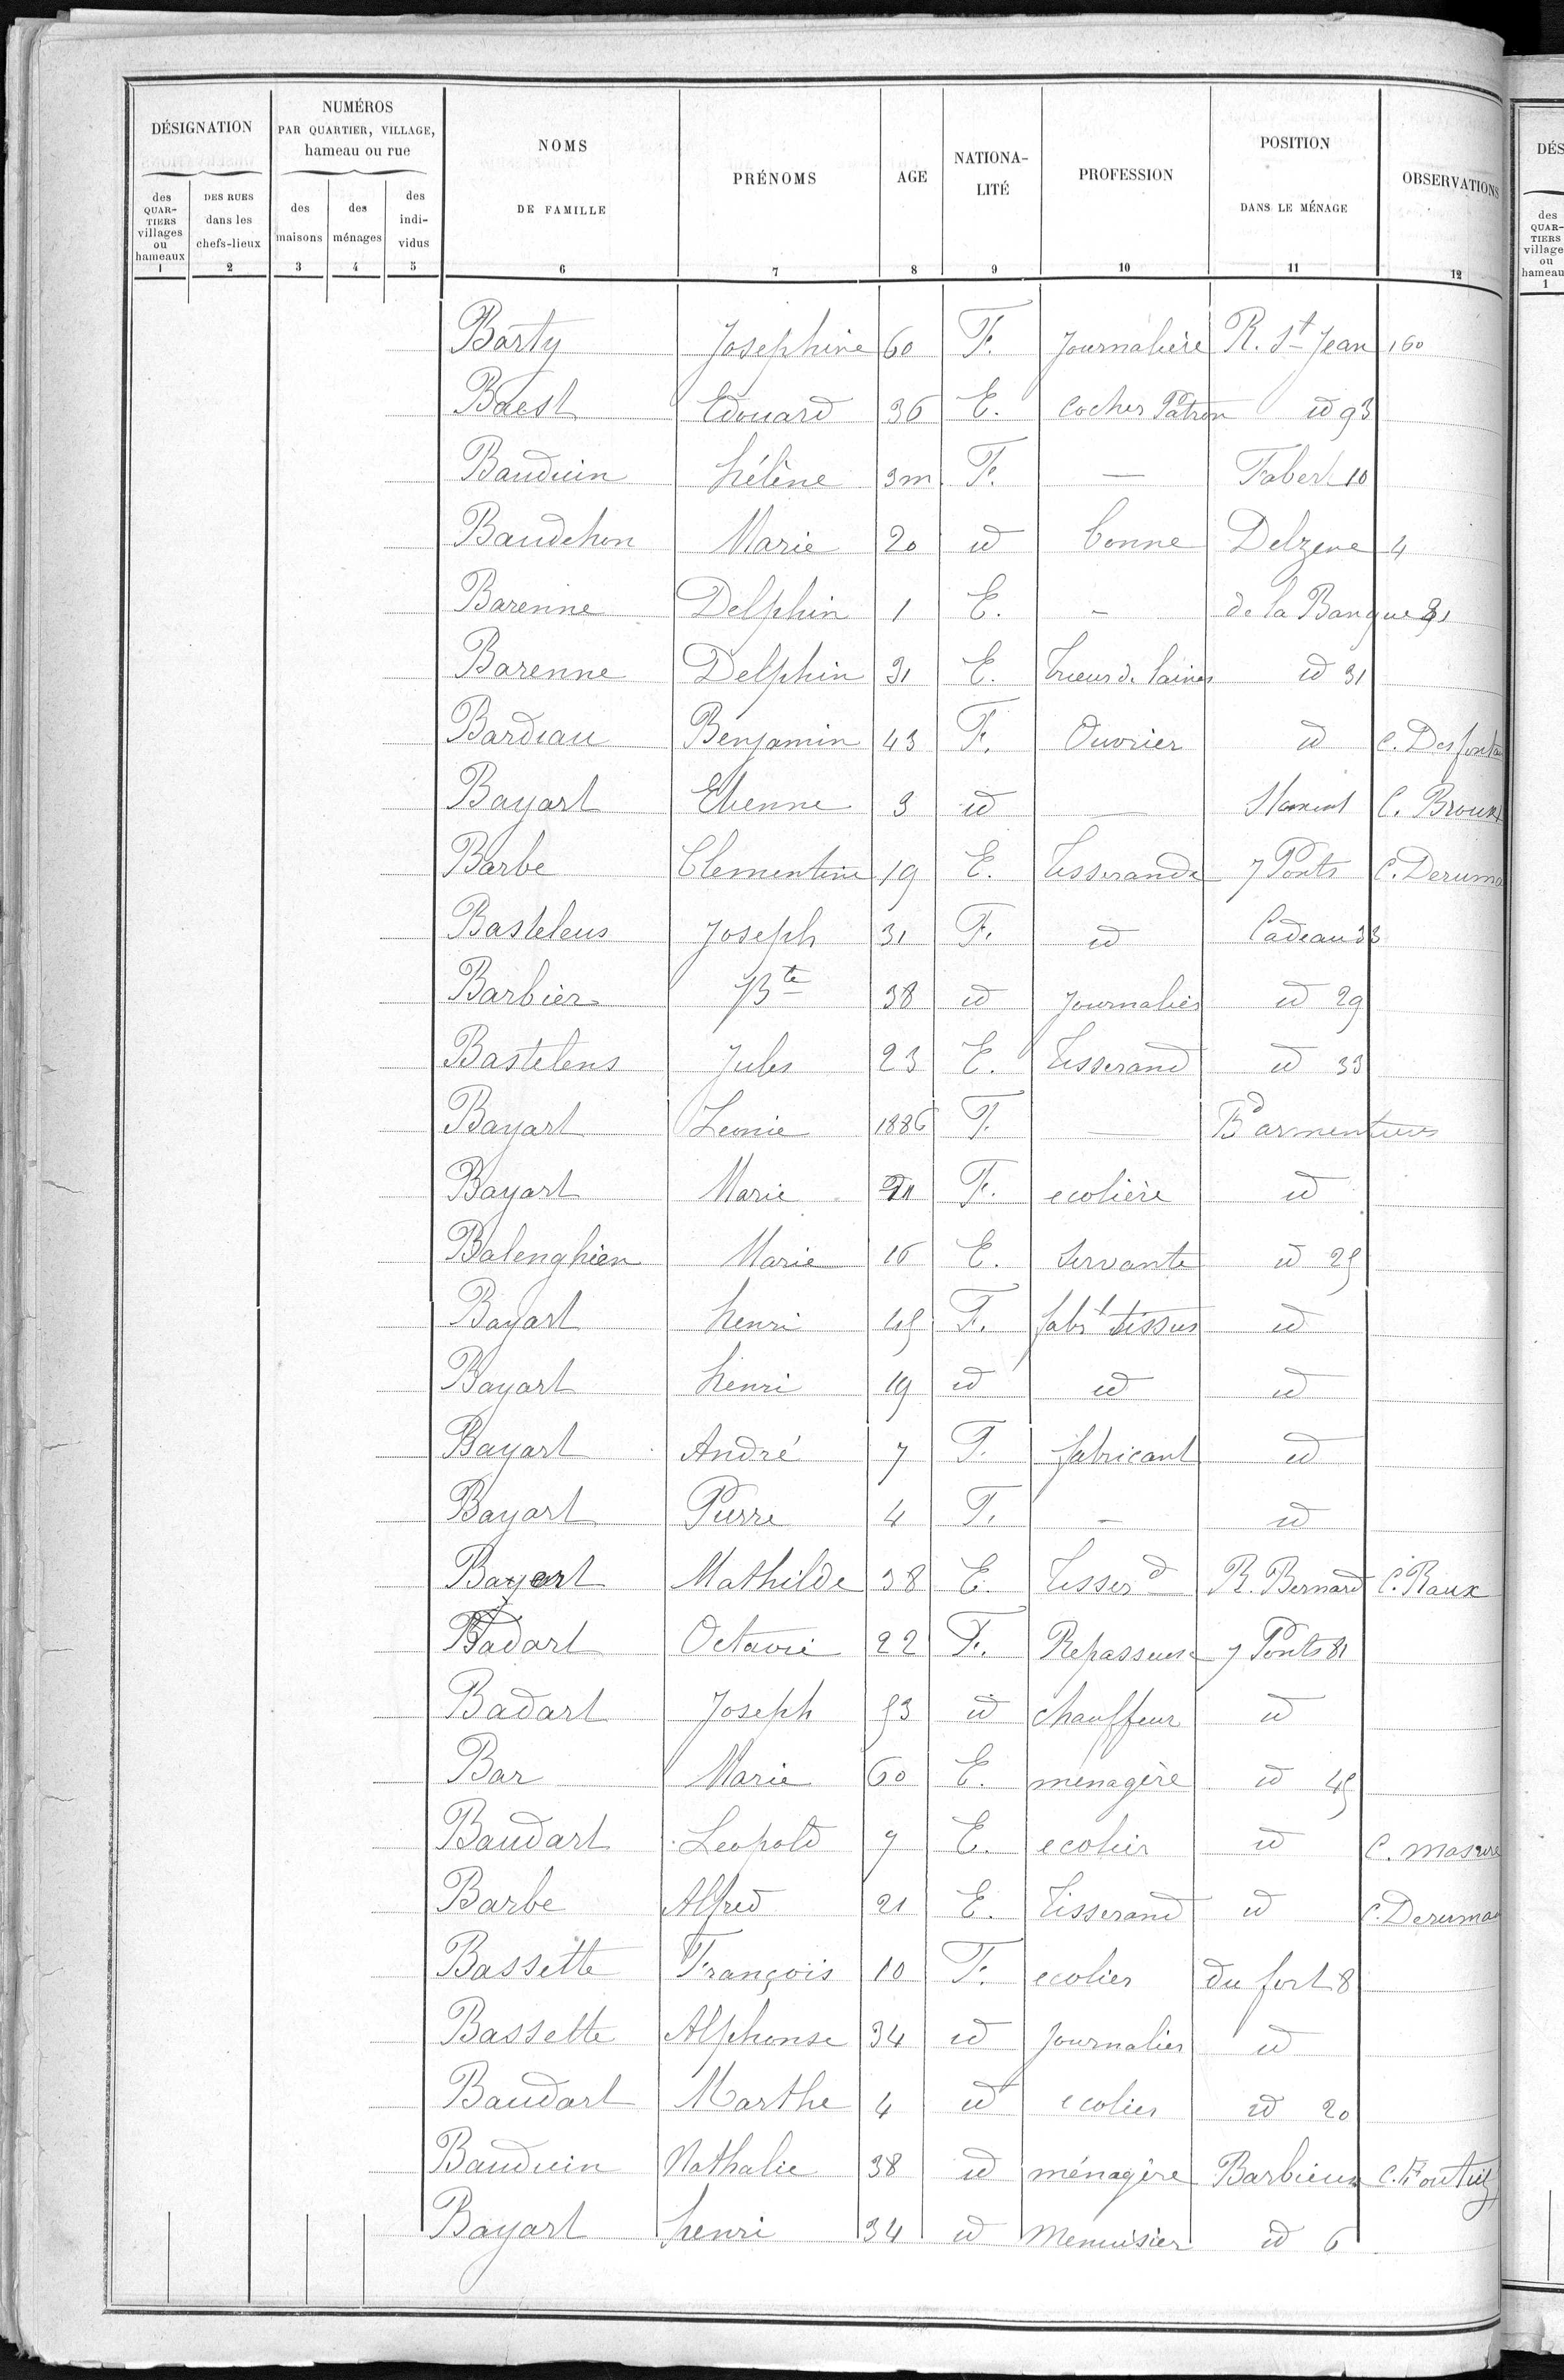 DÉSIGNATION
NUMÉROS PAR QUARTIER, VILLAGE, hameau ou rue
NOMS DE FAMILLE
PRÉNOMS
AGE
NATIONALITÉ
PROFESSION
POSITION DANS LE MÉNAGE
OBSERVATIONS
des QUARTIERS villages ou hameaux
DES RUES dans les chefs-lieux
des maisons
des ménages
des individus
1 2 3 4 5 6 7 8 9 10 11 12
Barty Josephine 60 F. Journalière R. St Jean 160
Baest Edouard 36 E. Cocher Patron id 93
Bauduin hélène 3m F. — Faber 10
Baudehon Marie 20 id bonne Delzene 4
Barenne Delphin 1 E. - de la Banque 31
Barenne Delphin 31 E. Trieur de laines id 31
Bardiau Benjamin 43 F. Ouvrier id C. Desfontai
Bayart Etienne 3 id — C. Broux
Barbe Clementine 19 E. Tisserande 7 Ponts C. Deruma
Bastelens Joseph 31 F. id Cadeau 33
Barbier JBte 38 id Journalier id 29
Bastelens Jules 23 E. Tisserand id 33
Bayart Leonie 1886 F. — Bd armentieres
Bayart Marie 11 F. ecolière id
Balenghien Marie 16 E. Servante id 25
Bayart henri 45 F. fabt tissus id
Bayart henri 19 id id id
Bayart André 7 F. fabricant id
Bayart Pierre 4 F. - id
Bayart Mathilde 38 E. Tisserd R. Bernard C. Raux
Badart Octavie 22 F. Repasseuse 7 Ponts 81
Badart Joseph 53 id chauffeur id
Bar Marie 60 E. menagère id 45
Baudart Leopold 9 E. ecolier id C. masure
Barbe Alfred 21 E. Tisserand id C. Derumau
Bassette François 10 F. ecolier du fort 8
Bassette Alphonse 34 id Journalier id
Baudart Marthe 4 id ecolier id 20
Bauduin Nathalie 38 id ménagère Barbieux
Bayart henri 34 id Menuisier id 6
DÉS
des QUAR- TIERS village ou hameau
1